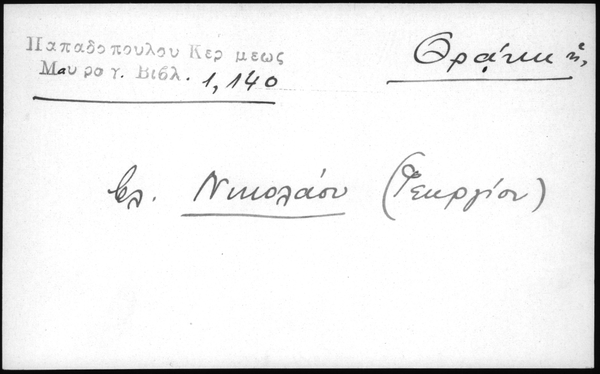 Παπαδοπουλου Κερ μεως
Μαυρογ. Βιβλ. 1,140
βλ. Νικολάου (Γεωργίου)